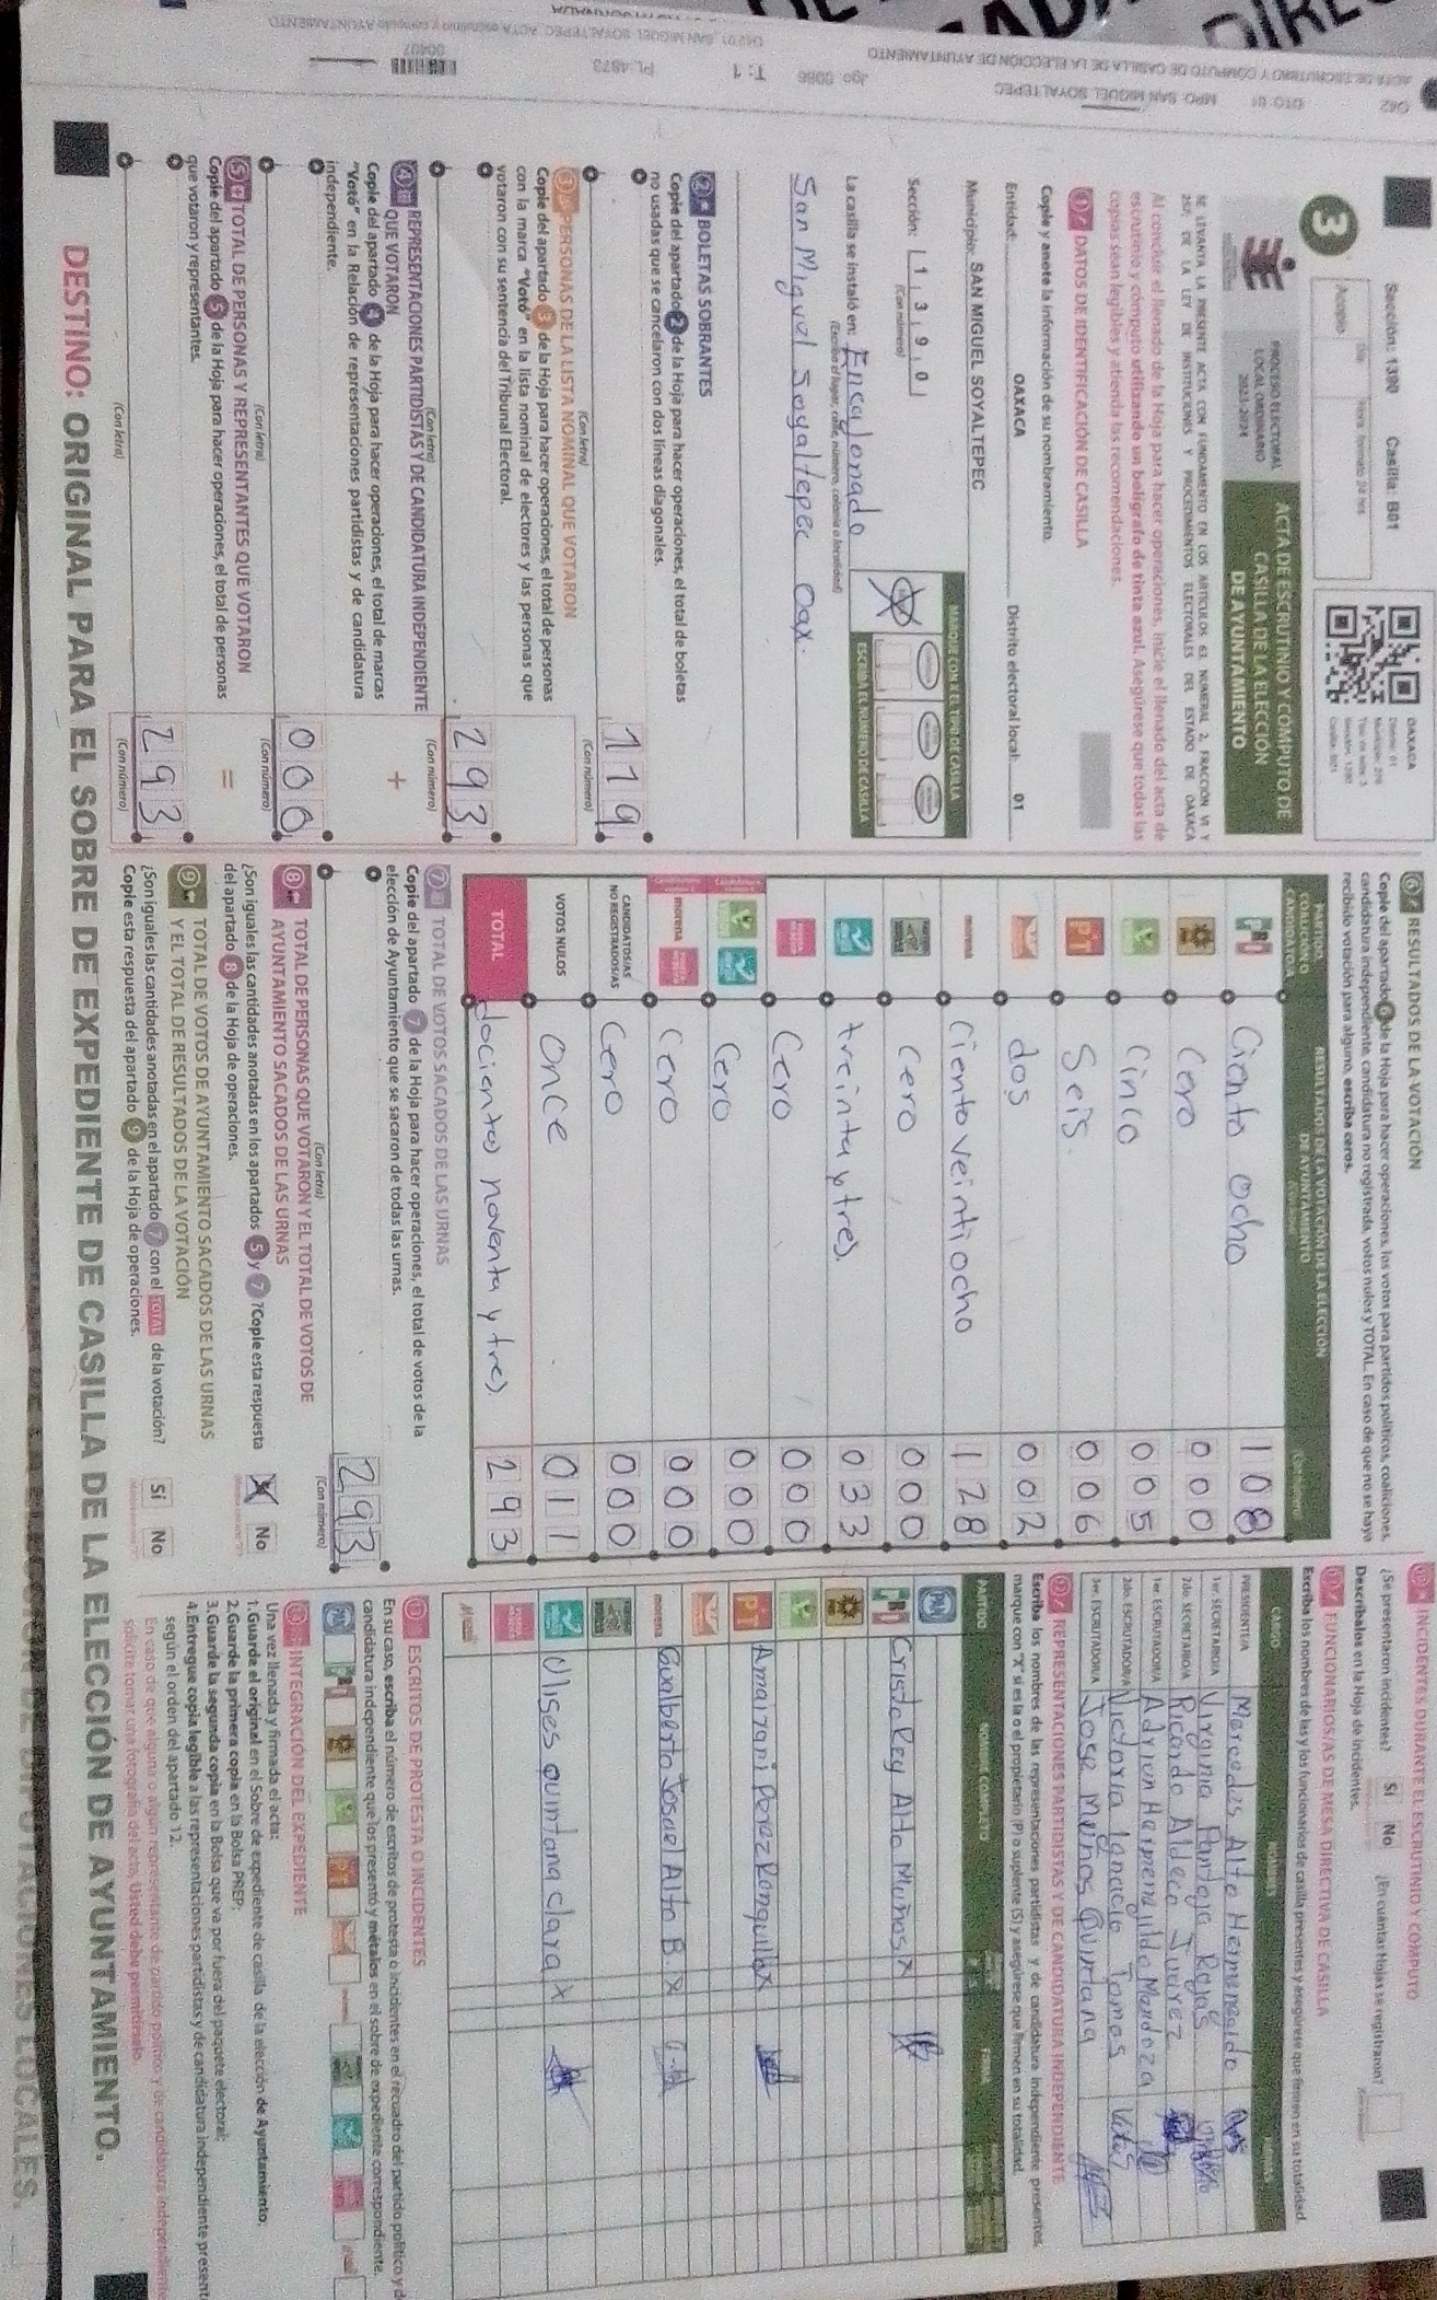 Sección: 1390 Casilla: B01
PROCESO ELECTORAL
LOCAL ORDINARIO
2023-2024
ACTA DE ESCRUTINIO Y CÓMPUTO DE
CASILLA DE LA ELECCIÓN
DE AYUNTAMIENTO
SE LEVANTA LA PRESENTE ACTA CON FUNDAMENTO EN LOS ARTÍCULOS 63, NUMERAL 2, FRACCIÓN VI Y
257, DE LA LEY DE INSTITUCIONES Y PROCEDIMIENTOS ELECTORALES DEL ESTADO DE OAXACA
Al concluir el llenado de la Hoja para hacer operaciones, inicie el llenado del acta de
escrutinio y cómputo utilizando un bolígrafo de tinta azul. Asegúrese que todas las
copias sean legibles y atienda las recomendaciones.
1 DATOS DE IDENTIFICACIÓN DE CASILLA
Copie y anote la información de su nombramiento.
Entidad: OAXACA Distrito electoral local: 01
Municipio: SAN MIGUEL SOYALTEPEC
Sección: 1 3 9 0
(Con número)
MARQUE CON X EL TIPO DE CASILLA
ESCRIBA EL NÚMERO DE CASILLA
La casilla se instaló en: Encajonado
(Escriba el lugar, calle, número, colonia o localidad)
San Miguel Soyaltepec Oax.
2 BOLETAS SOBRANTES
Copie del apartado 2 de la Hoja para hacer operaciones, el total de boletas
no usadas que se cancelaron con dos líneas diagonales.
119
(Con letra) (Con número)
3 PERSONAS DE LA LISTA NOMINAL QUE VOTARON
Copie del apartado 3 de la Hoja para hacer operaciones, el total de personas
con la marca "Votó" en la lista nominal de electores y las personas que
votaron con su sentencia del Tribunal Electoral.
293
(Con letra) (Con número)
4 REPRESENTACIONES PARTIDISTAS Y DE CANDIDATURA INDEPENDIENTE
QUE VOTARON +
Copie del apartado 4 de la Hoja para hacer operaciones, el total de marcas
"Votó" en la Relación de representaciones partidistas y de candidatura
independiente.
000
(Con letra) (Con número)
5 TOTAL DE PERSONAS Y REPRESENTANTES QUE VOTARON =
Copie del apartado 5 de la Hoja para hacer operaciones, el total de personas
que votaron y representantes.
293
(Con letra) (Con número)
6 RESULTADOS DE LA VOTACIÓN
Copie del apartado 6 de la Hoja para hacer operaciones, los votos para partidos políticos, coaliciones,
candidatura independiente, candidatura no registrada, votos nulos y TOTAL. En caso de que no se haya
recibido votación para alguno, escriba ceros.
PARTIDO, COALICIÓN O CANDIDATO/A
RESULTADOS DE LA VOTACIÓN DE LA ELECCIÓN
DE AYUNTAMIENTO
PRI Ciento ocho 108
Cero 000
Cinco 005
PT Seis. 006
dos 002
morena Ciento veintiocho 128
Cero 000
treinta y tres. 033
Cero 000
Cero 000
morena Cero 000
CANDIDATOS/AS
NO REGISTRADOS/AS Cero 000
VOTOS NULOS Once 011
TOTAL docientos noventa y tres. 293
7 TOTAL DE VOTOS SACADOS DE LAS URNAS
Copie del apartado 7 de la Hoja para hacer operaciones, el total de votos de la
elección de Ayuntamiento que se sacaron de todas las urnas.
293
(Con letra) (Con número)
8 TOTAL DE PERSONAS QUE VOTARON Y EL TOTAL DE VOTOS DE
AYUNTAMIENTO SACADOS DE LAS URNAS
¿Son iguales las cantidades anotadas en los apartados 5 y 7? Copie esta respuesta
del apartado 8 de la Hoja de operaciones. X No
9 TOTAL DE VOTOS DE AYUNTAMIENTO SACADOS DE LAS URNAS
Y EL TOTAL DE RESULTADOS DE LA VOTACIÓN
¿Son iguales las cantidades anotadas en el apartado 7 con el TOTAL de la votación?
Copie esta respuesta del apartado 9 de la Hoja de operaciones. Sí No
10 INCIDENTES DURANTE EL ESCRUTINIO Y CÓMPUTO
¿Se presentaron incidentes? Sí No ¿En cuántas Hojas se registraron?
Descríbalos en la Hoja de incidentes.
11 FUNCIONARIOS/AS DE MESA DIRECTIVA DE CASILLA
Escriba los nombres de las y los funcionarios de casilla presentes y asegúrese que firmen en su totalidad.
CARGO NOMBRES
PRESIDENTE/A Mercedes Alto Hermenegildo
1er. SECRETARIO/A Virginia Pantoja Rojas
2do. SECRETARIO/A Ricardo Aldeco Juárez
1er. ESCRUTADOR/A Adrian Hermenegildo Mendoza
2do. ESCRUTADOR/A Victoria Ignacio Tomas
3er. ESCRUTADOR/A Jose Muños Quintana
12 REPRESENTACIONES PARTIDISTAS Y DE CANDIDATURA INDEPENDIENTE
Escriba los nombres de las representaciones partidistas y de candidatura independiente presentes,
marque con "X" si es la o el propietario (P) o suplente (S) y asegúrese que firmen en su totalidad.
PARTIDO NOMBRE COMPLETO FIRMA
PAN
PRI Cristo Rey Alto Muños X
PT Amairani Perez Ronquillo X
morena Gualberto Josael Alto B. X
Ulises Quintana Clara X
13 ESCRITOS DE PROTESTA O INCIDENTES
En su caso, escriba el número de escritos de protesta o incidentes en el recuadro del partido político y
candidatura independiente que los presentó y métalos en el sobre de expediente correspondiente.
14 INTEGRACIÓN DEL EXPEDIENTE
Una vez llenada y firmada el acta:
1. Guarde el original en el Sobre de expediente de casilla de la elección de Ayuntamiento;
2. Guarde la primera copia en la Bolsa PREP;
3. Guarde la segunda copia en la Bolsa que va por fuera del paquete electoral;
4. Entregue copia legible a las representaciones partidistas y de candidatura independiente
según el orden del apartado 12.
En caso de que alguna o algún representante de partido político y de candidatura independiente
solicite tomar una fotografía del acta, Usted debe permitírselo.
DESTINO: ORIGINAL PARA EL SOBRE DE EXPEDIENTE DE CASILLA DE LA ELECCIÓN DE AYUNTAMIENTO.